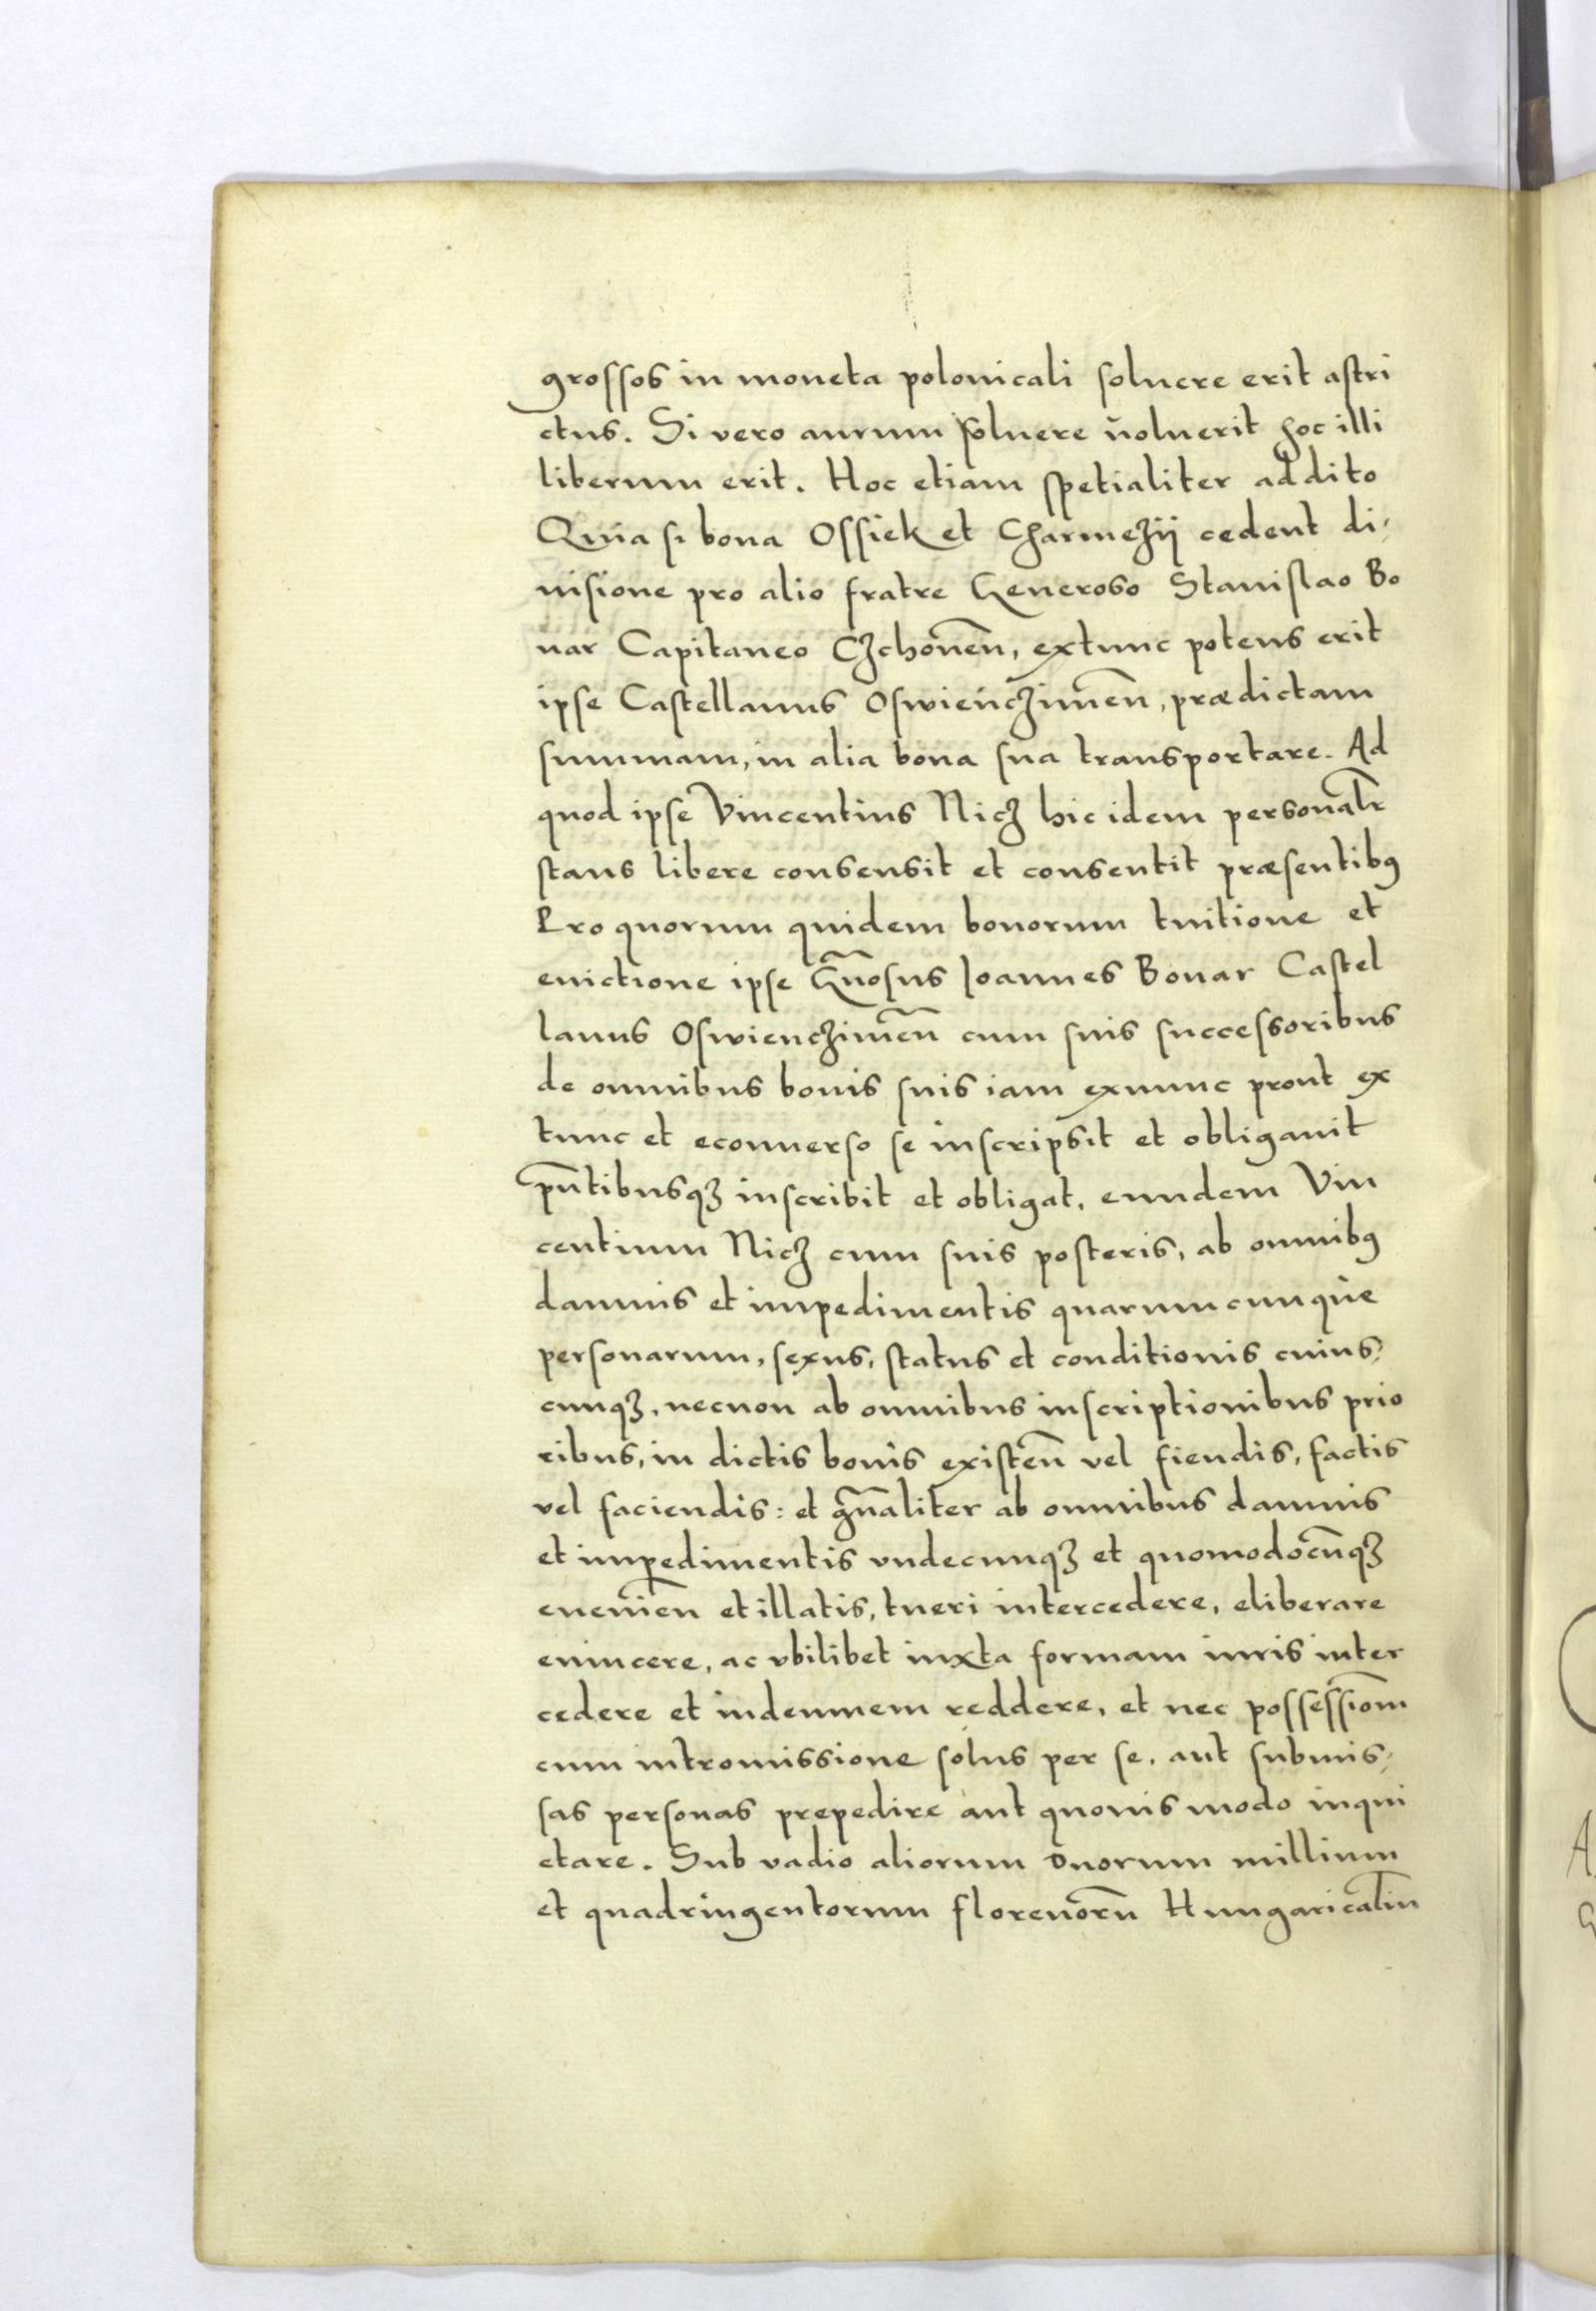 grossos in moneta polonicali soluere erit astri
ctus. Si vero aurum soluere uoluerit hoc illi
liberum erit. Hoc etiam spetialiter addito
Quia si bona Ossiek et Charmezij cedent di⸗
uisione pro alio fratre Generoso Stanislao Bo
nar Capitaneo Czchoueñ, extunc potens erit
ipse Castellanus Oswienczimeñ, prædictam
summam, in alia bona sua transportare. Ad
quod ipse Vincentius Nicz hic idem personalr̃
stans libere consensit et consentit præsentibꝰ
Pro quorum quidem bonorum tuitione et
euictione ipse Gñosus Ioannes Bonar Castel
lanus Oswienczimeñ cum suis successoribus
de omnibus bonis suis iam exnunc prout ex
tunc et econuerso se inscripsit et obligauit
pñtibusqꝫ inscribit et obligat, eundem Vin
centium Nicz cum suis posteris, ab omnibꝰ
damnis et impedimentis quarumcunque
personarum, sexus, status et conditionis cuius⸗
cunqꝫ, necnon ab omnibus inscriptionibus prio
ribus, in dictis bonis existeñ vel fiendis, factis
vel faciendis: et gñaliter ab omnibus damnis
et impedimentis vndecunqꝫ et quomodocũqꝫ
eueñien et illatis, tueri intercedere, eliberare
euincere, ac vbilibet iuxta formam iuris inter
cedere et indemnem reddere, et nec possessiom̃
cum intromissione solus per se, aut submis⸗
sas personas prepedire aut quouis modo inqui
etare. Sub vadio aliorum duorum millium
et quadringentorum florenorũ Hungaricaliũ